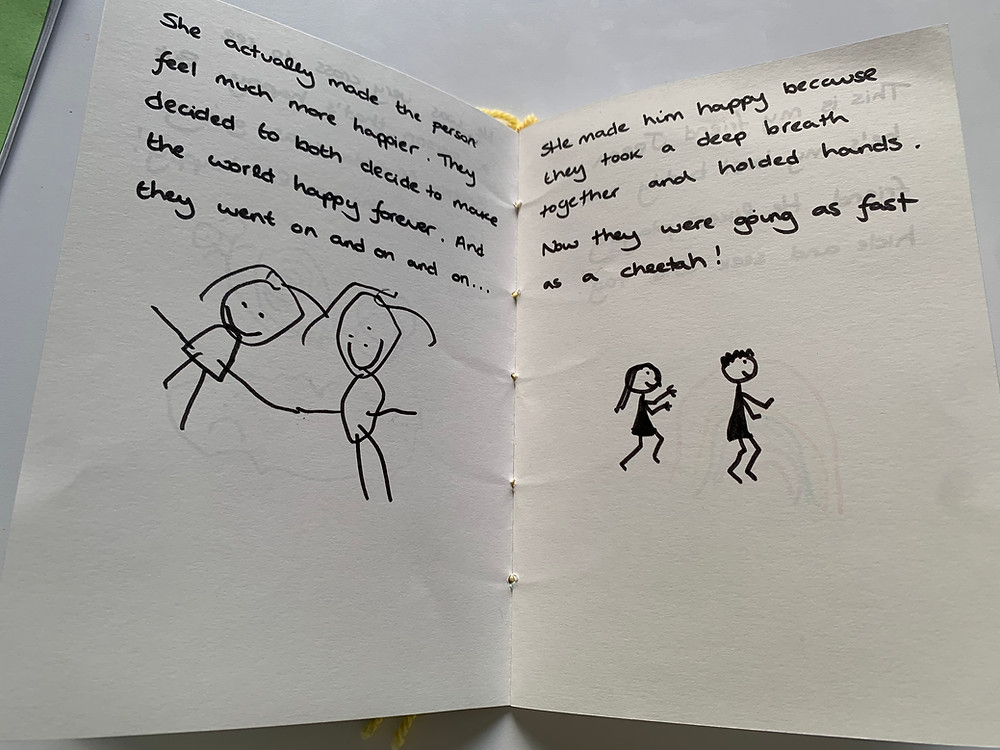 She actually made the person
feel much more happier. They
decided to both decide to make
the world happy forever. And
they went on and on and on...
She made him happy because
they took a deep breath
together and holded hands.
Now they were going as fast
as a cheetah!